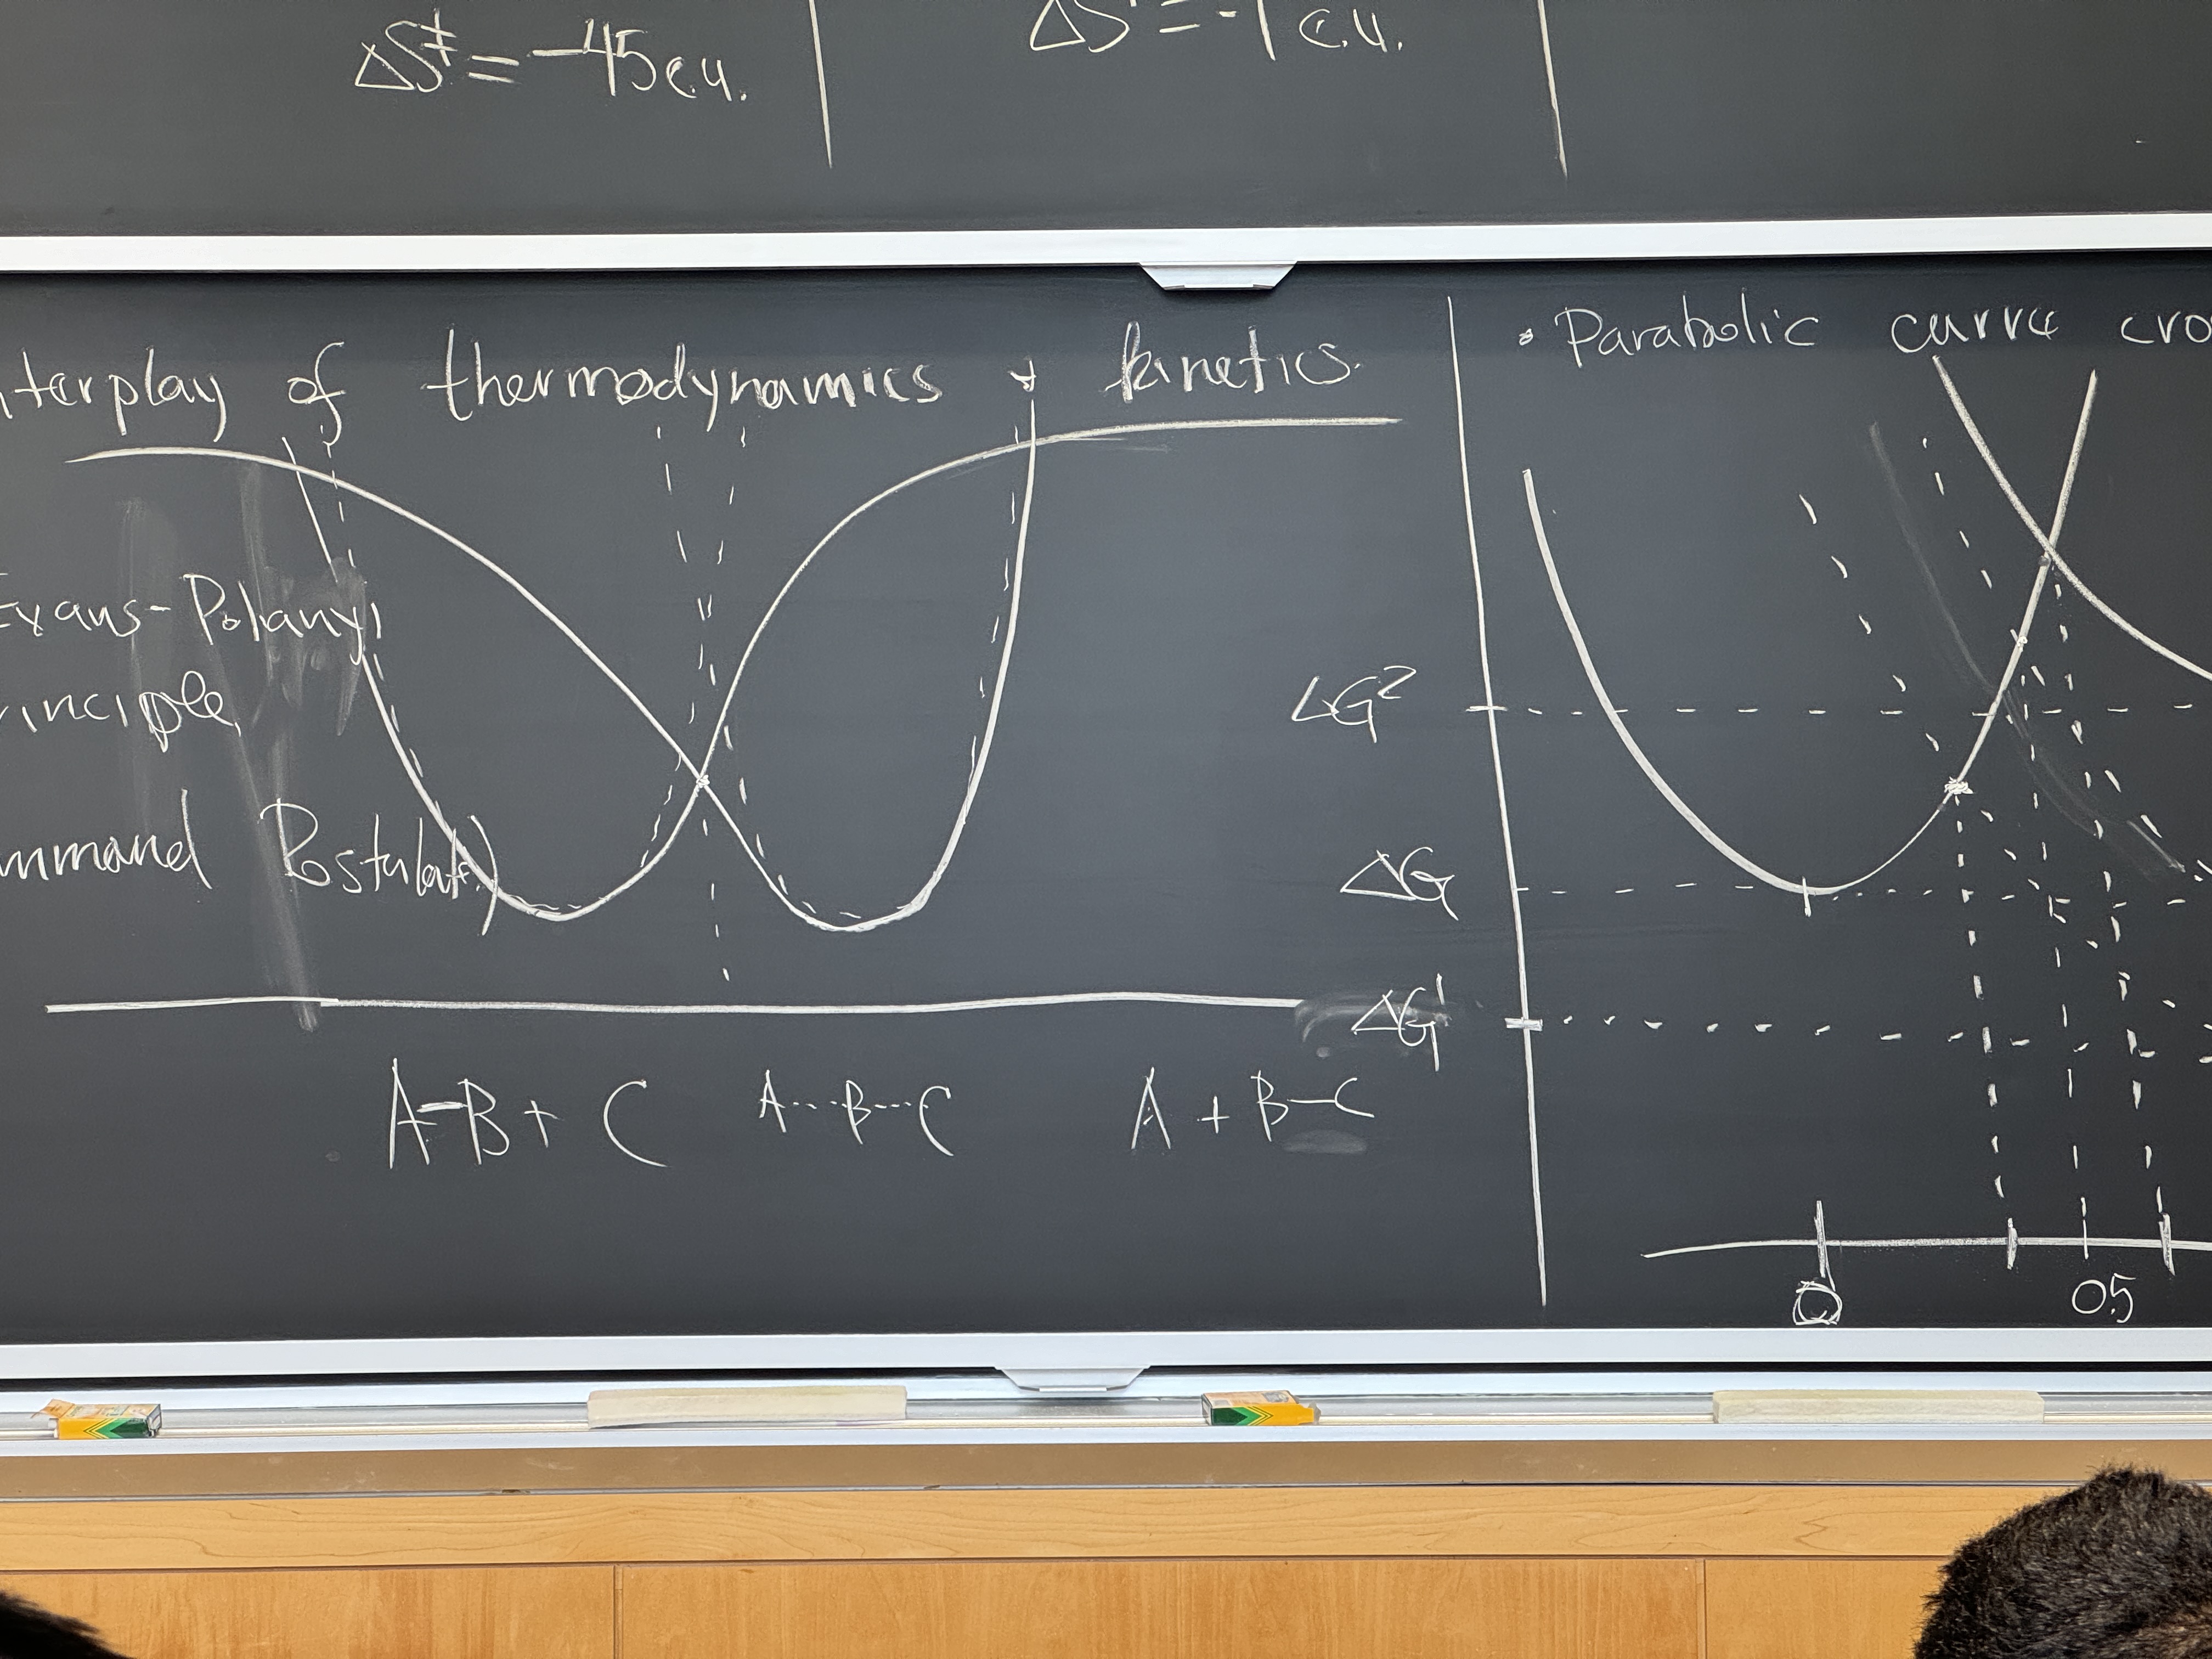 ΔS‡ = -45 e.u.
ΔS = -1 e.u.
nterplay of thermodynamics + kinetics.
Evans-Polanyi
rinciple
ammond Postulate)
A-B + C
A---B---C
A + B-C
• Parabolic curve cro
ΔG²
ΔG
ΔG¹
0
0.5